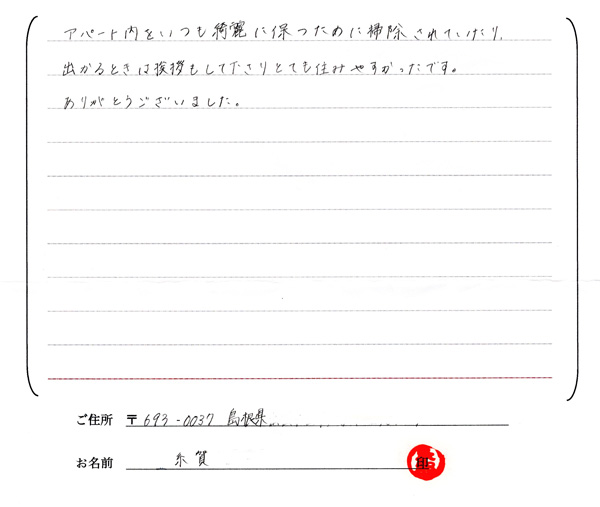 アパート内をいつも綺麗に保つために掃除されていたり、
出かるときは挨拶もして下さりとても住みやすかったです。
ありがとうございました。
ご住所 〒693-0037 島根県
お名前 糸賀
印